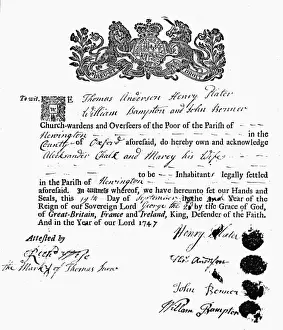 To wit. WE Thomas Anderson Henry Slater
William Bampton and John Bonner
Church-wardens and Overseers of the Poor of the Parish of
Newington in the
County of Oxford aforesaid, do hereby own and acknowledge
Alecksander Chalk and Marey his Wife
to be Inhabitants legally settled
in the Parish of Newington
aforesaid. In witness whereof, we have hereunto set our Hands and
Seals, this 19th Day of September in the Year of the
Reign of our Sovereign Lord George the 2d by the Grace of God,
of Great-Britain, France and Ireland, King, Defender of the Faith.
And in the Year of our Lord 1747
Attested by
Henry Slater
Tho: Anderson
The Mark of Thomas
John Bonner
William Bampton